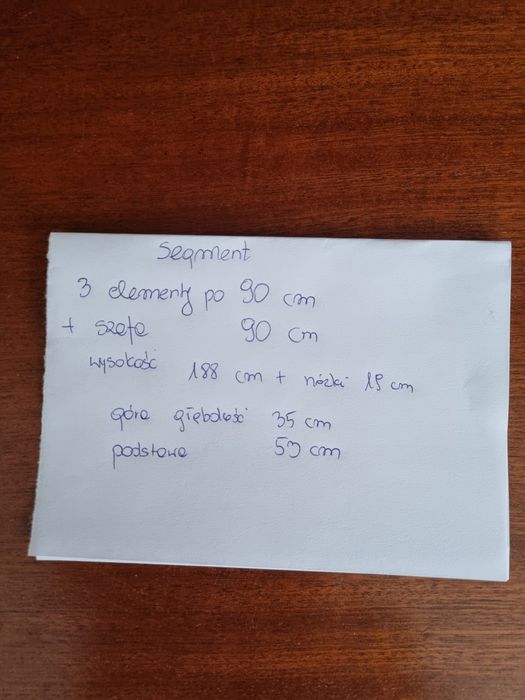 Segment
3 elementy po 90 cm
+ szafa 90 cm
wysokość 188 cm + nóżki 15 cm
góra głębokość 35 cm
podstawa 53 cm